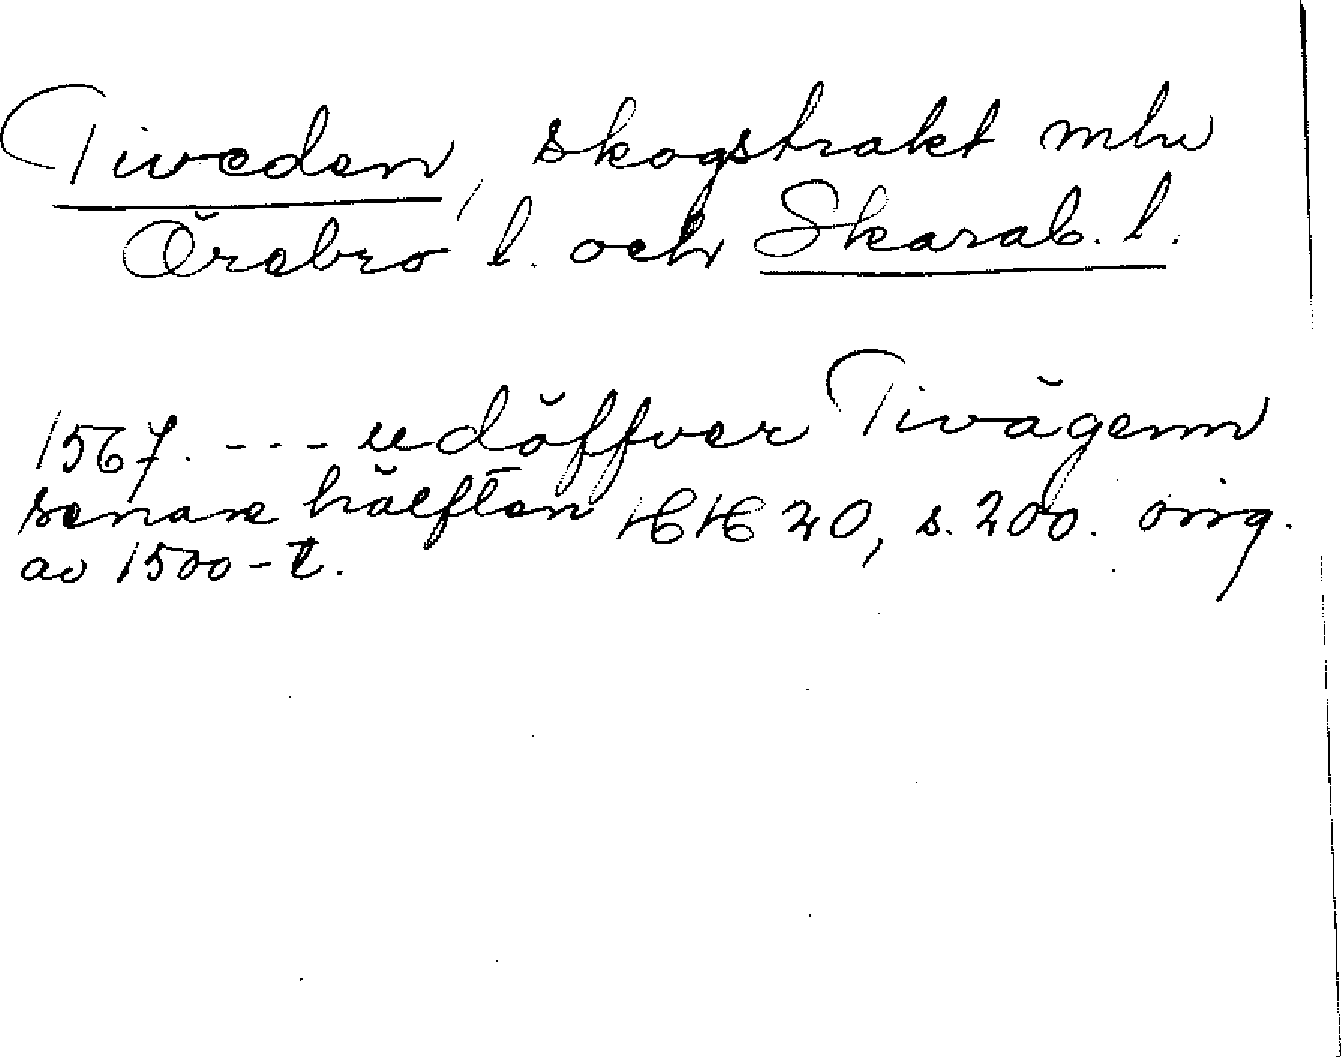 Tiveden, skogstrakt mln
Örebro l. och Skarab. l.
1567. --- udöffver Tivägenn
senare hälften HH 20, s. 200. orig.
av 1500-t.